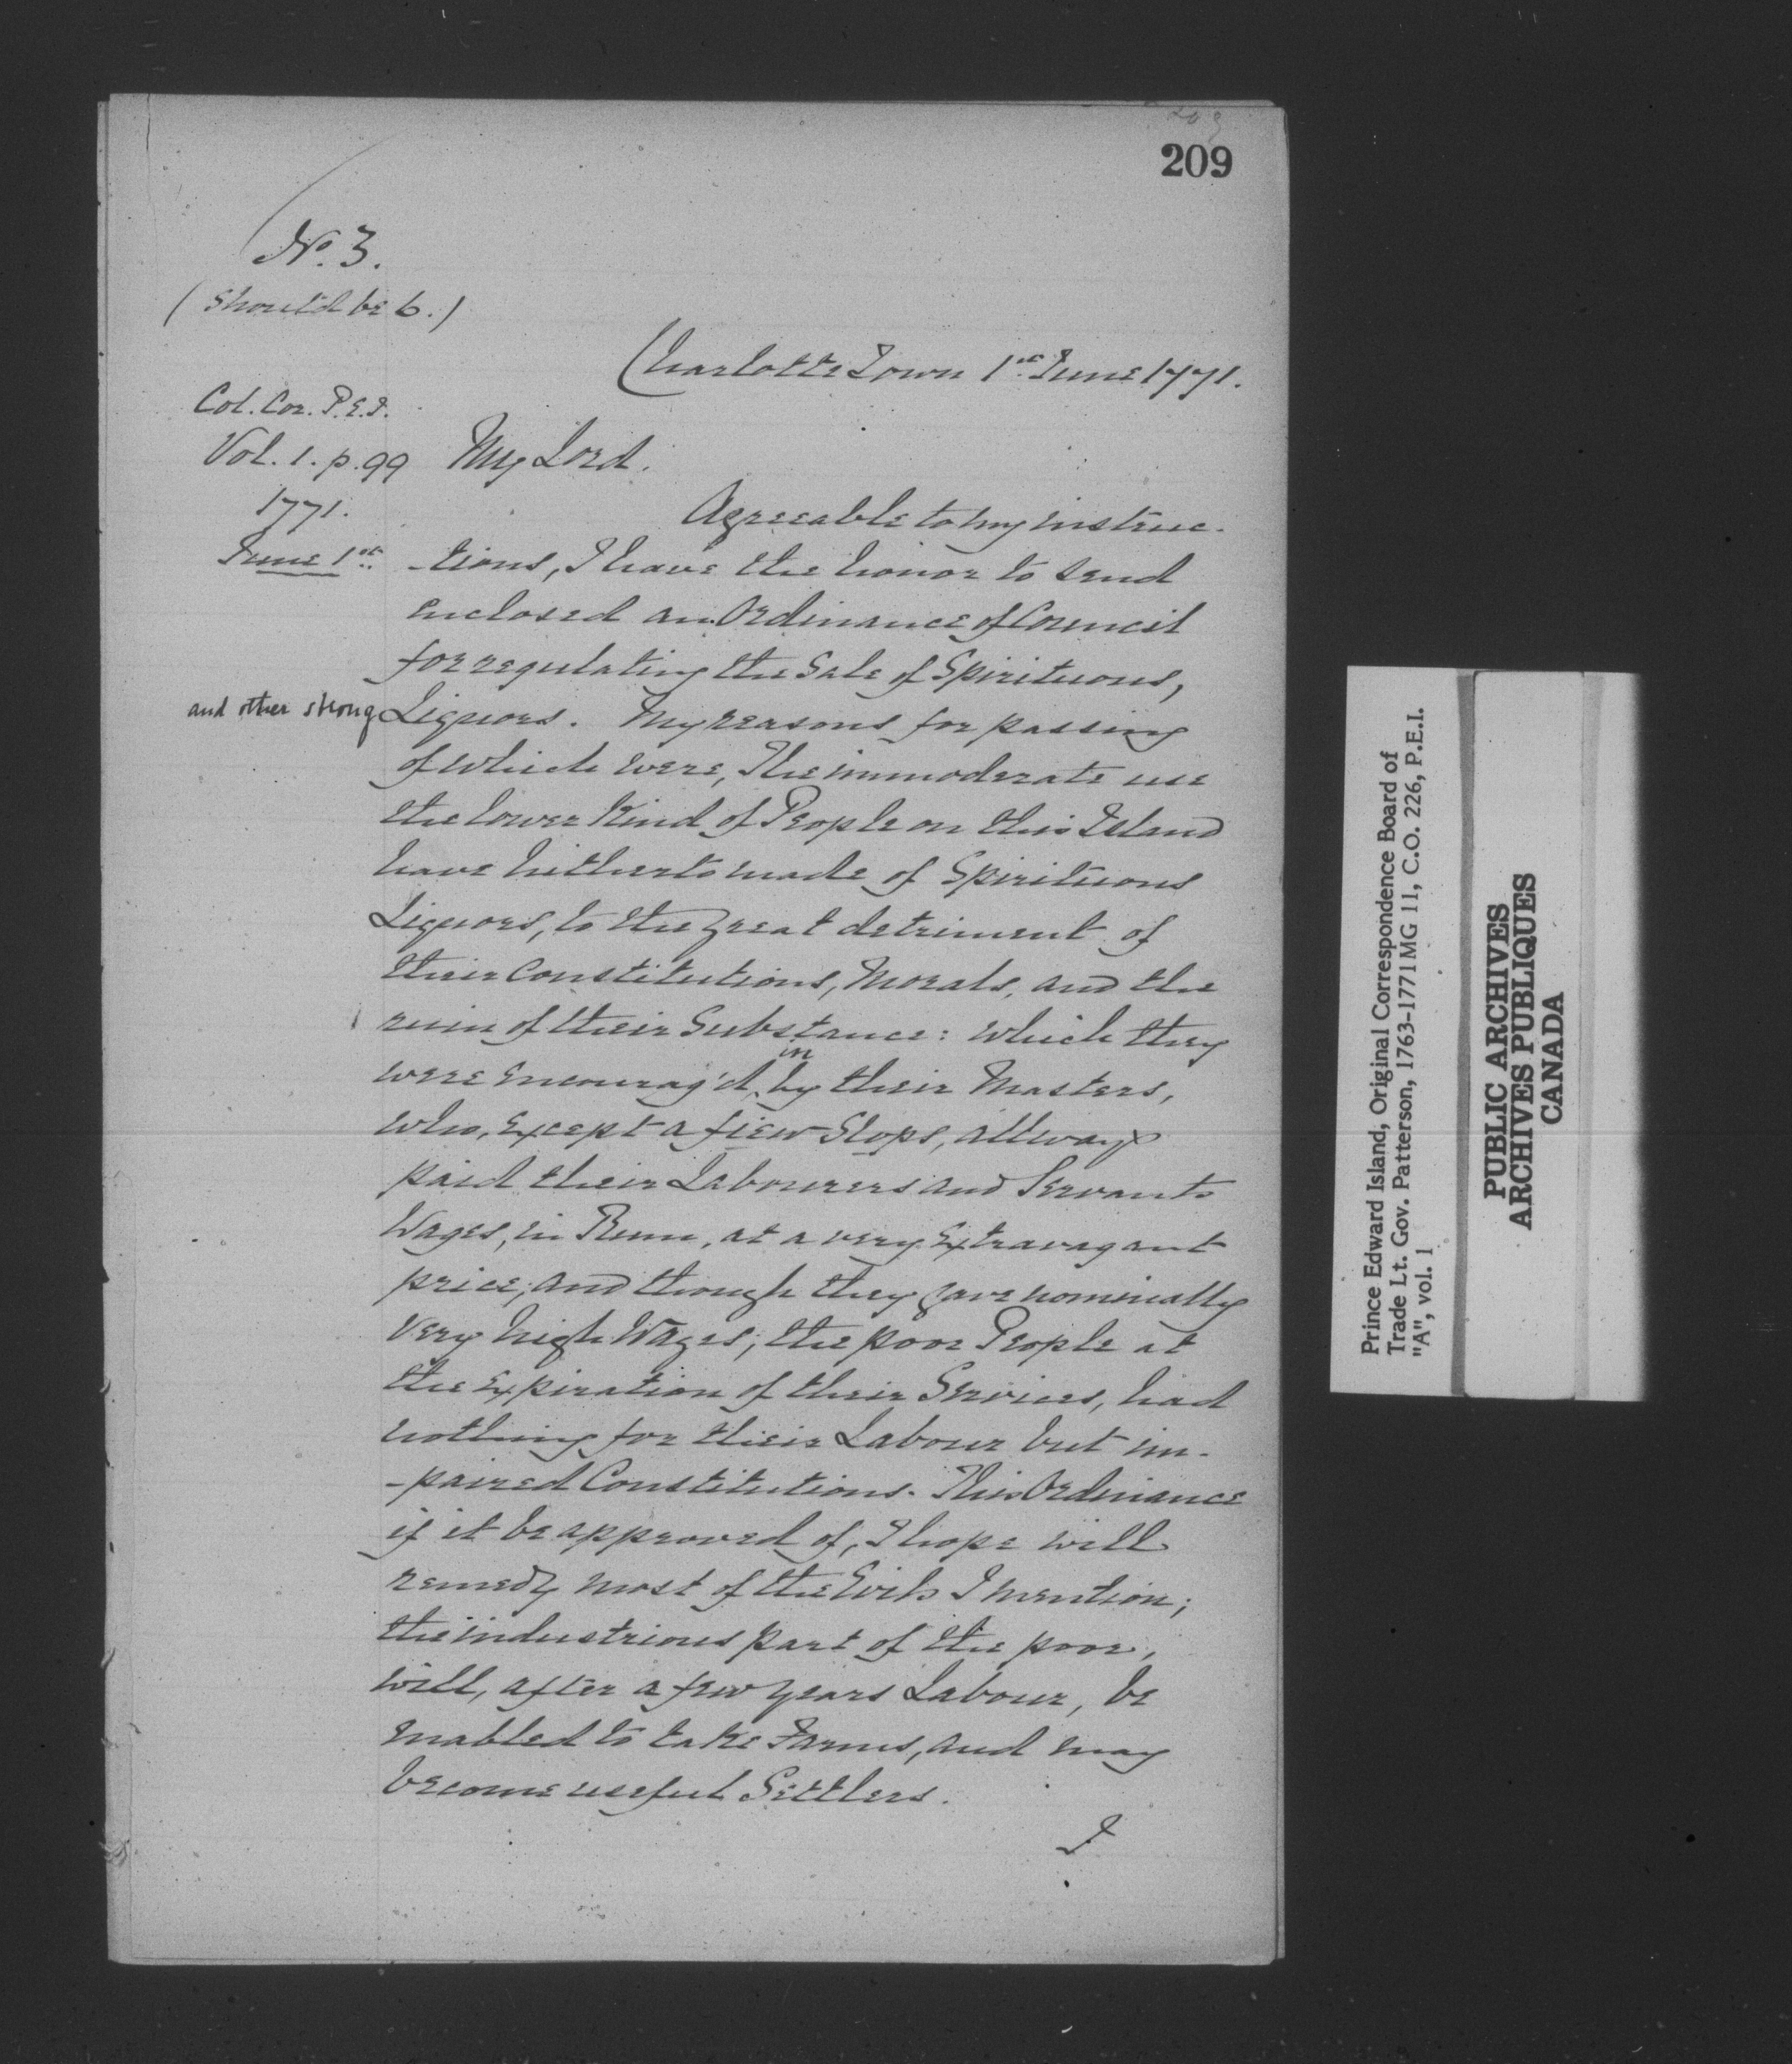 209
209
No. 3.
(Should be 6.)
Charlotte Town 1st June 1771.
Col. Cor. P.E.I.
Vol. 1. p. 99
1771.
June 1st
My Lord.
Agreeable to my instruc-
-tions, I have the honor to send
enclosed an Ordinance of Council
for regulating the Sale of Spirituous,
and other strong Liquors. My reasons for passing
of which were, The immoderate use
the lower Kind of People on this Island
have hitherto made of Spirituous
Liquors, to the great detriment of
their Constitutions, Morals, and the
ruin of their Substance: which they
were encourag'd in by their Masters,
who, Except a fiew Slops, allways
paid their Labourers and Servants
Wages, in Rum, at a very Extravagant
price; and though they gave nominally
very high Wages; the poor People at
the Expiration of their Services, had
nothing for their Labour but im-
-paired Constitutions. This Ordinance
if it be approved of, I hope will
remedy most of the Evils I mention;
the industrious part of the poor,
will, after a few years Labour, be
enabled to take Farms, and may
become useful Settlers.
I
Prince Edward Island, Original Correspondence Board of
Trade Lt. Gov. Patterson, 1763-1771 MG 11, C.O. 226, P.E.I.
"A", vol. 1
PUBLIC ARCHIVES
ARCHIVES PUBLIQUES
CANADA